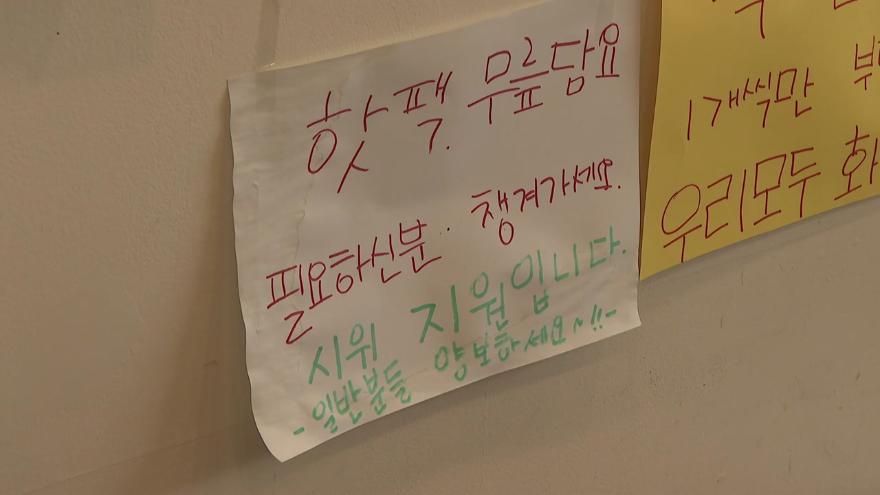 핫팩. 무릎담요
필요하신분. 챙겨가세요.
시위 지원입니다.
- 일반분들 양보하세요~!! -
1개씩만
우리모두 화